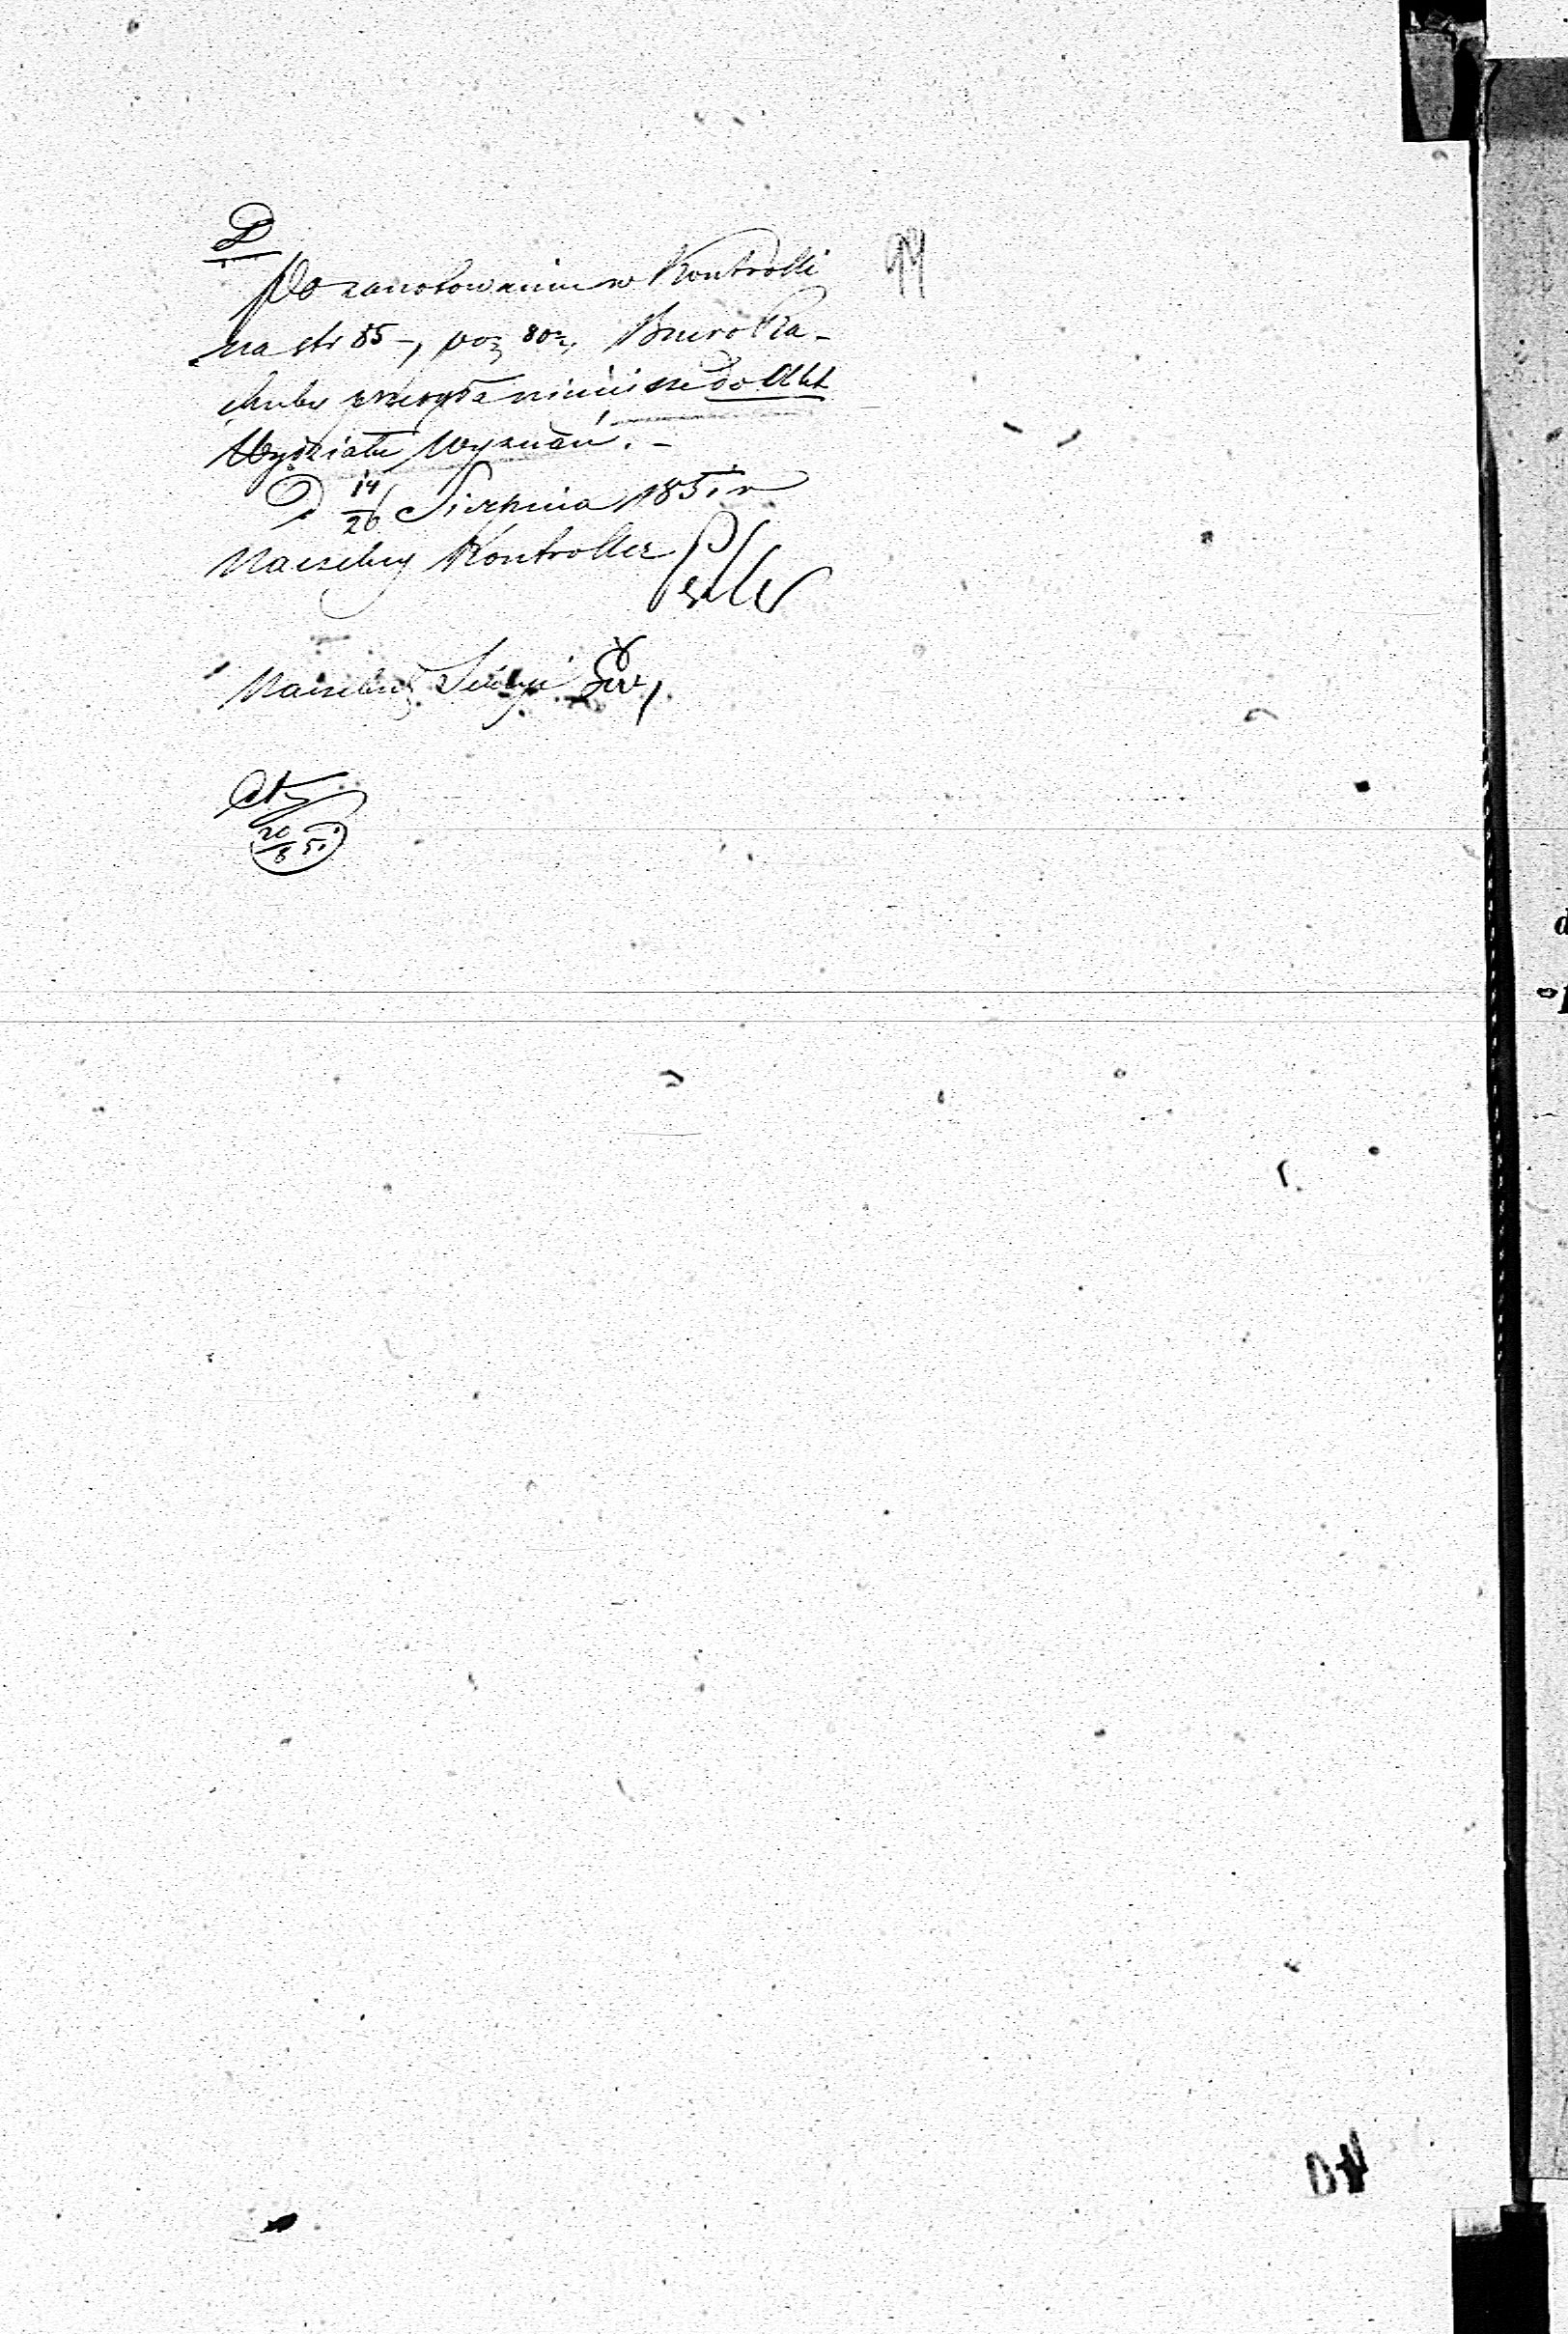 D
Po zanotowaniu w Kontrolli
na str 85 -, poz 802, Biuro Ra-
chuby przesyła niniejsze do Akt
Wydziału Wyznań. -
D 14/26 Sierpnia 1851 r
Naczelny Kontroller
Naczelnik Sekcyi
20/8 51